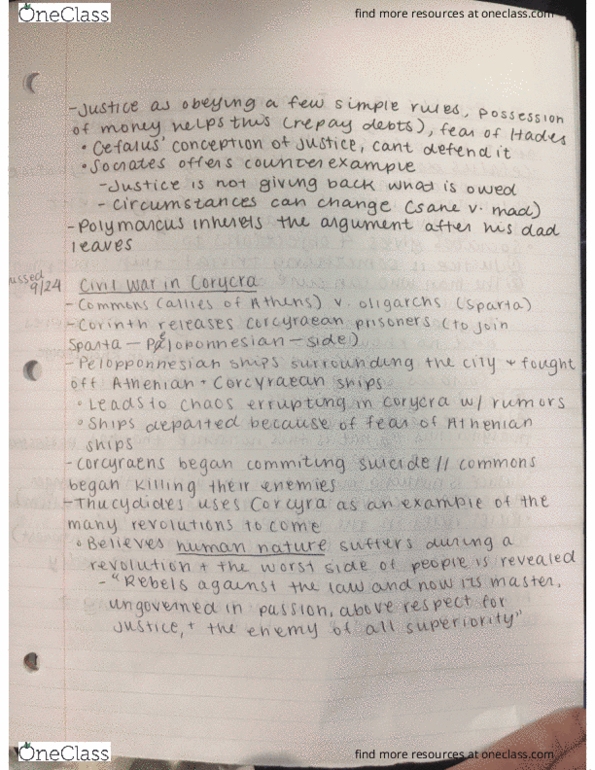 OneClass
find more resources at oneclass.com
-Justice as obeying a few simple rules, possession
of money helps this (repay debts), fear of Hades
• Cefalus' conception of justice, cant defend it
• Socrates offers counterexample
-Justice is not giving back what is owed
- circumstances can change (sane v. mad)
-Polymarcus inherets the argument after his dad
leaves
ussed
9/24
Civil War in Corycra
-Commons (allies of Athens) v. oligarchs (Sparta)
-Corinth releases corcyraean prisoners (to join
Sparta - Peloponnesian - side)
-Pelopponnesian ships surrounding the city + fought
off Athenian + Corcyraean ships
• Leads to chaos errupting in corycra w/ rumors
• Ships departed because of fear of Athenian
ships
-corcyraens began commiting suicide // commons
began killing their enemies
-Thucydides uses Corcyra as an example of the
many revolutions to come
• Believes human nature suffers during a
revolution + the worst side of people is revealed
- "Rebels against the law and now its master,
ungoverned in passion, above respect for
justice, + the enemy of all superiority"
OneClass
find more resources at oneclass.com